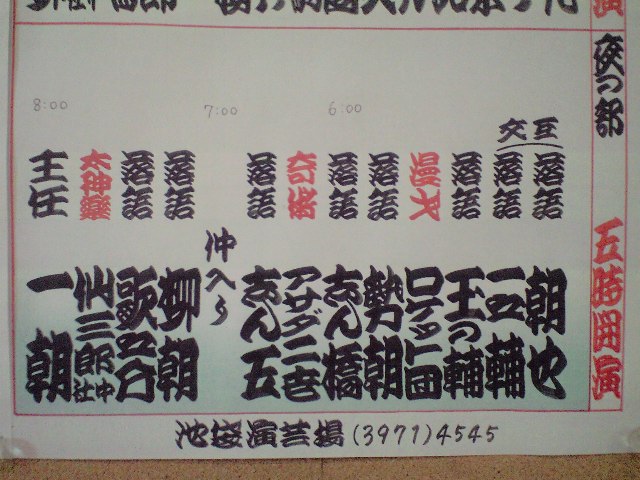 夜の部 五時開演
交互
落語 朝也
一五輔
落語 王の輔
漫才 ロケット団
落語 勢朝
落語 志ん橋
奇術 アサダ二世
落語 志ん五
仲入り
落語 柳朝
落語 歌五介
太神楽 仙三郎社中
主任 一朝
6:00
7:00
8:00
池袋演芸場(3971)4545